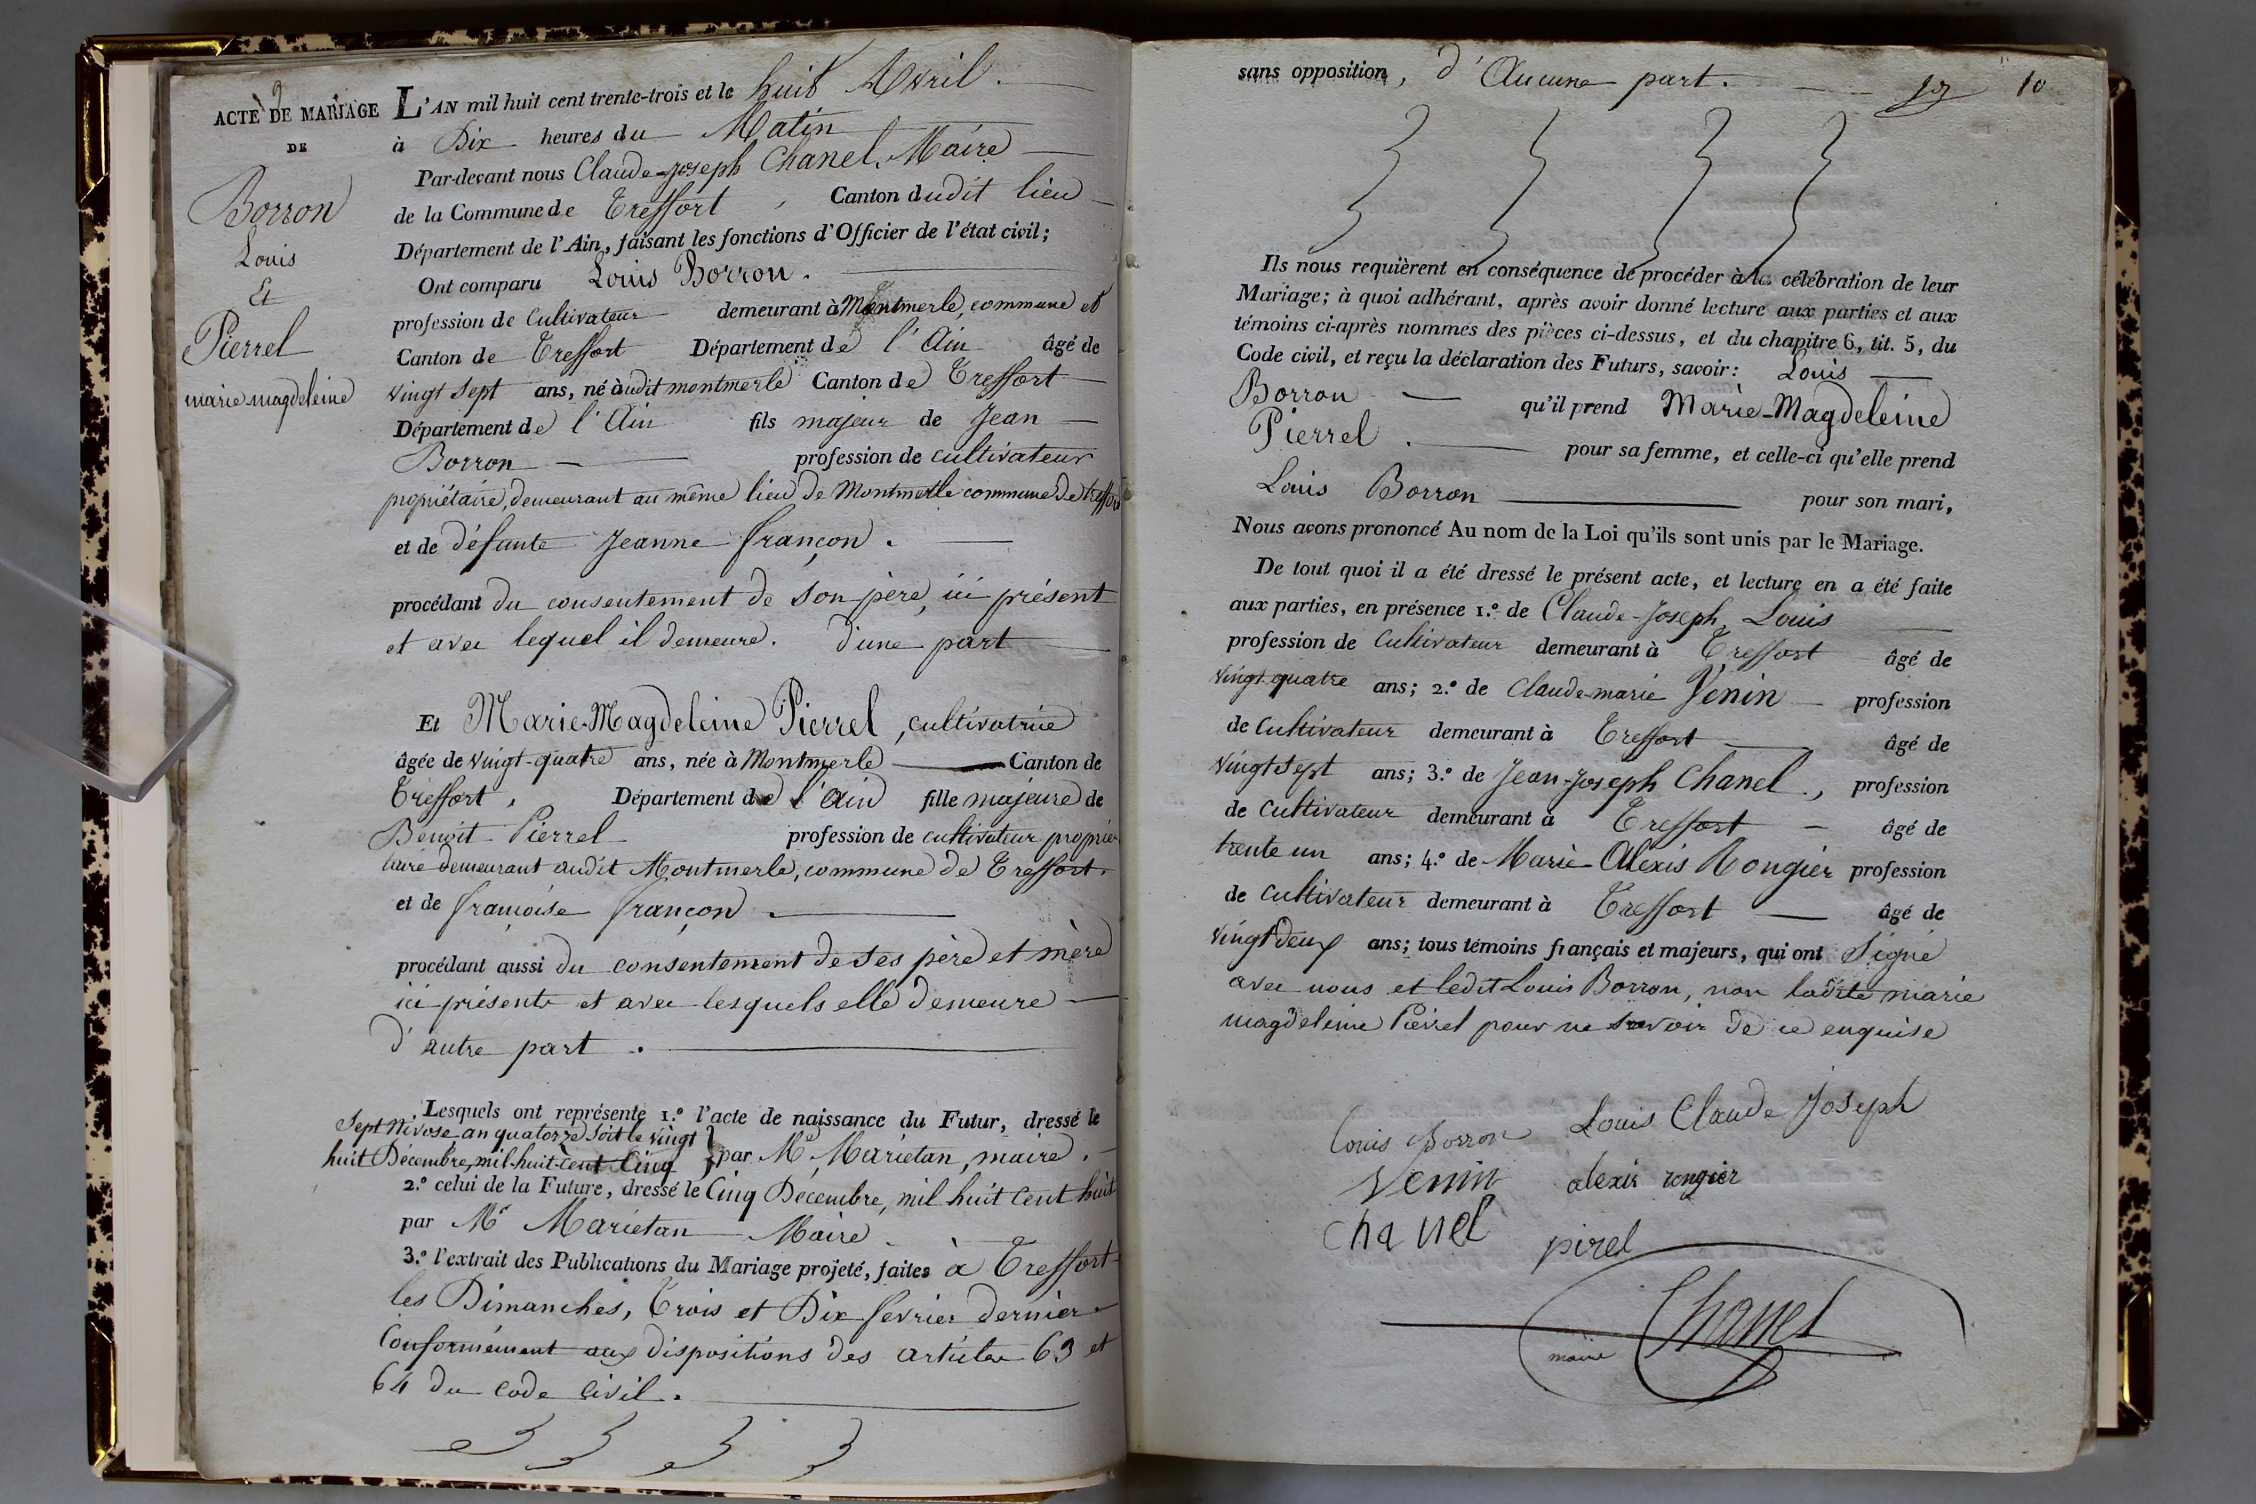 9
ACTE DE MARIAGE
DE
Borron
Louis
Et
Pierrel
marie magdeleine
L'AN mil huit cent trente-trois et le huit Avril.
à Dix heures du Matin
Par-devant nous Claude-Joseph Chanel, Maire
de la Commune de Treffort, Canton dudit lieu
Département de l'Ain, faisant les fonctions d'Officier de l'état civil;
Ont comparu Louis Borron.
profession de Cultivateur demeurant à Montmerle, commune et
Canton de Treffort Département de l'Ain âgé de
vingt sept ans, né audit montmerle Canton de Treffort
Département de l'Ain fils majeur de Jean
Borron profession de cultivateur
propriétaire, demeurant au même lieu de Montmerle commune de treffort
et de défunte Jeanne françon.
procédant du consentement de son père, ici présent
et avec lequel il demeure. d'une part
Et Marie-Magdeleine Pierrel, cultivatrice
âgée de vingt-quatre ans, née à Montmerle Canton de
Treffort, Département de l'Ain fille majeure de
Benoit Pierrel profession de cultivateur proprié-
taire demeurant audit Montmerle, commune de Treffort.
et de françoise françon.
procédant aussi du consentement de ses père et mère
ici présents et avec lesquels elle demeure
d'autre part.
Lesquels ont représenté 1.º l'acte de naissance du Futur, dressé le
Sept Nivose an quatorze soit le vingt
huit Decembre, mil-huit-cent Cinq par Mr Marietan, maire.
2.º celui de la Future, dressé le Cinq Décembre, mil huit Cent huit
par Mr Marietan Maire
3.º l'extrait des Publications du Mariage projeté, faites à Treffort
les Dimanches, Trois et Dix fevrier dernier
Conformément aux dispositions des articles 63 et
64 du code Civil.
sans opposition, d'Aucune part.
10
Ils nous requièrent en conséquence de procéder à la célébration de leur
Mariage; à quoi adhérant, après avoir donné lecture aux parties et aux
témoins ci-après nommés des pièces ci-dessus, et du chapitre 6, tit. 5, du
Code civil, et reçu la déclaration des Futurs, savoir: Louis
Borron qu'il prend Marie-Magdeleine
Pierrel. pour sa femme, et celle-ci qu'elle prend
Louis Borron pour son mari,
Nous avons prononcé Au nom de la Loi qu'ils sont unis par le Mariage.
De tout quoi il a été dressé le présent acte, et lecture en a été faite
aux parties, en présence 1.º de Claude-Joseph Louis
profession de Cultivateur demeurant à Treffort âgé de
vingt quatre ans; 2.º de Claude-marie Venin profession
de Cultivateur demeurant à Treffort âgé de
vingt sept ans; 3.º de Jean-Joseph Chanel, profession
de Cultivateur demeurant à Treffort âgé de
trente un ans; 4.º de Marie-Alexis Rongier profession
de Cultivateur demeurant à Treffort âgé de
vingt deux ans; tous témoins français et majeurs, qui ont Signé
avec nous et ledit Louis Borron, non ladite marie
magdeleine Pierrel pour ne savoir de ce enquise
Louis Borron Louis Claude Joseph
Venin alexis rongier
Chanel pirel
maire Chanel